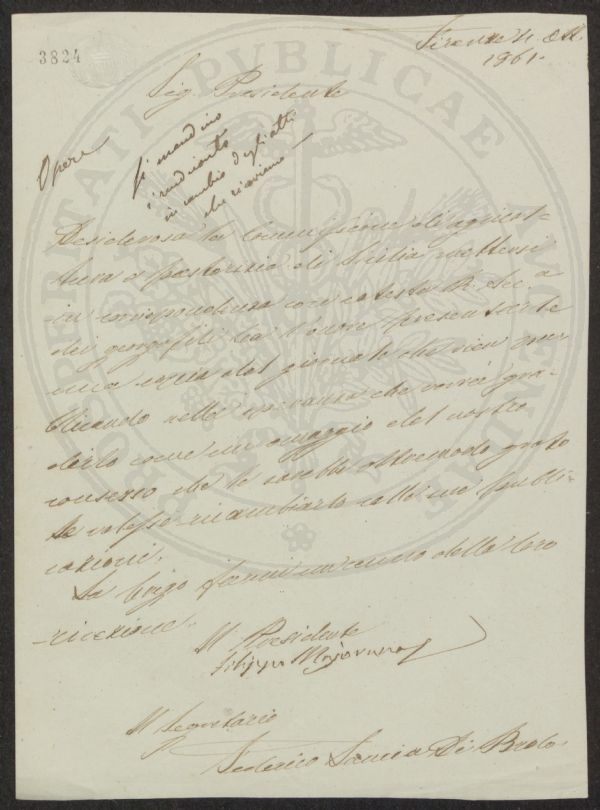 3824
Firenze 4 8bre
1861.
Sig. Presidente
Opere
si mandino
i rendiconti
in cambio degli atti
che riceviamo
Desiderosa la Commissione di agricol-
tura e pastorizia di Sicilia mettersi
in corrispondenza con cotesta R. Acc.a
dei georgofili ha l'onore presentarle
una copia del giornale che vien pub-
blicando nella speranza che vorrà gra-
dirlo come un omaggio del nostro
consesso che le sarebbe oltremodo grato
se volesse ricambiarlo colle sue pubbli-
cazioni.
La prego farmi un cenno della loro
ricezione.
Il Presidente
Filippo Majorana
Il Segretario
Federico Lancia Di Brolo
PROSPERITATI PUBLICAE AUGENDAE